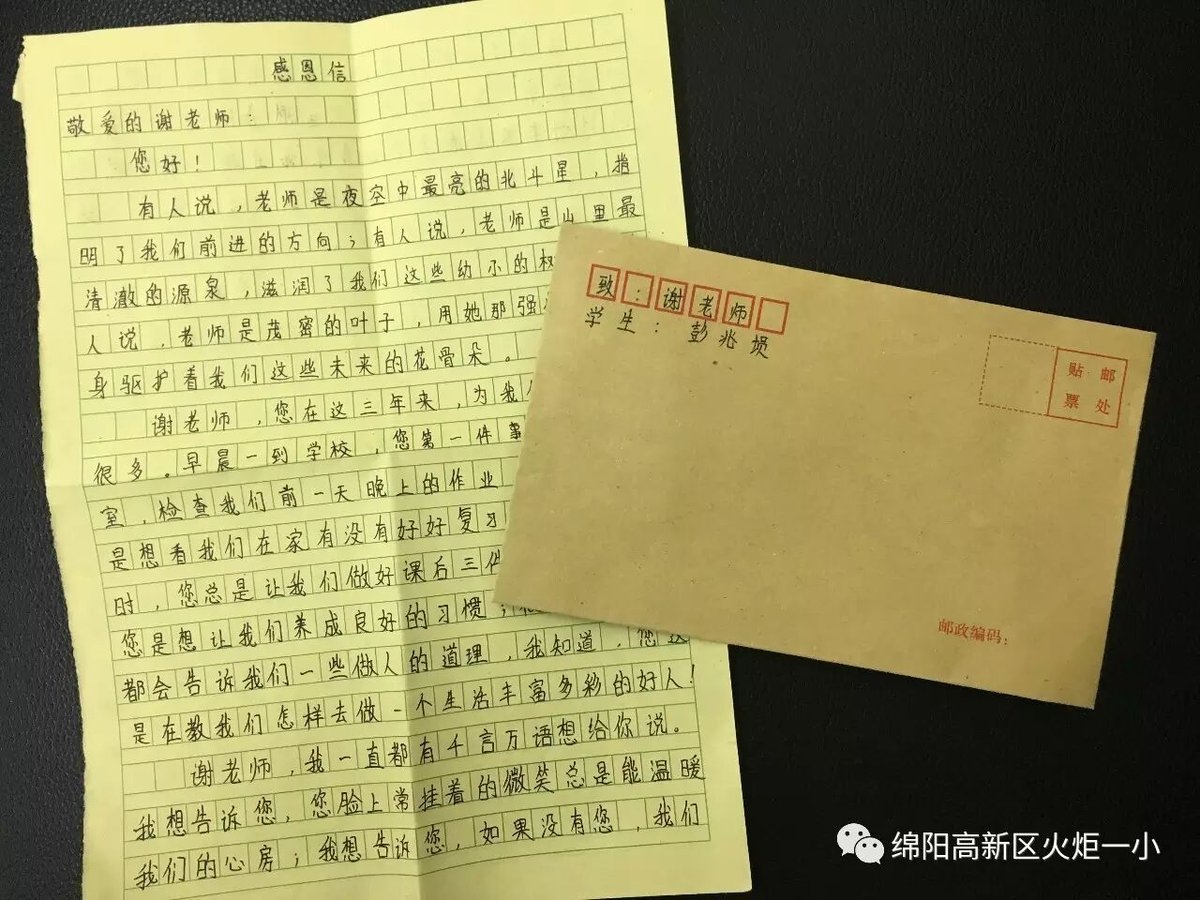 感恩信
敬爱的谢老师：
您好！
有人说，老师是夜空中最亮的北斗星，指
明了我们前进的方向；有人说，老师是山里最
清澈的源泉，滋润了我们这些幼小的
人说，老师是茂密的叶子，用她那强
身驱护着我们这些未来的花骨朵。
谢老师，您在这三年来，为我
很多。早晨一到学校，您第一件事
室，检查我们前一天晚上的作业
是想看我们在家有没有好好复习
时，您总是让我们做好课后三件
您是想让我们养成良好的习惯；
都会告诉我们一些做人的道理，我知道，您这
是在教我们怎样去做一个生活丰富多彩的好人！
谢老师，我一直都有千言万语想给你说。
我想告诉您，您脸上常挂着的微笑总是能温暖
我们的心房；我想告诉您，如果没有您，我们
致：谢老师
学生：彭兆埙
贴邮
票处
邮政编码：
绵阳高新区火炬一小